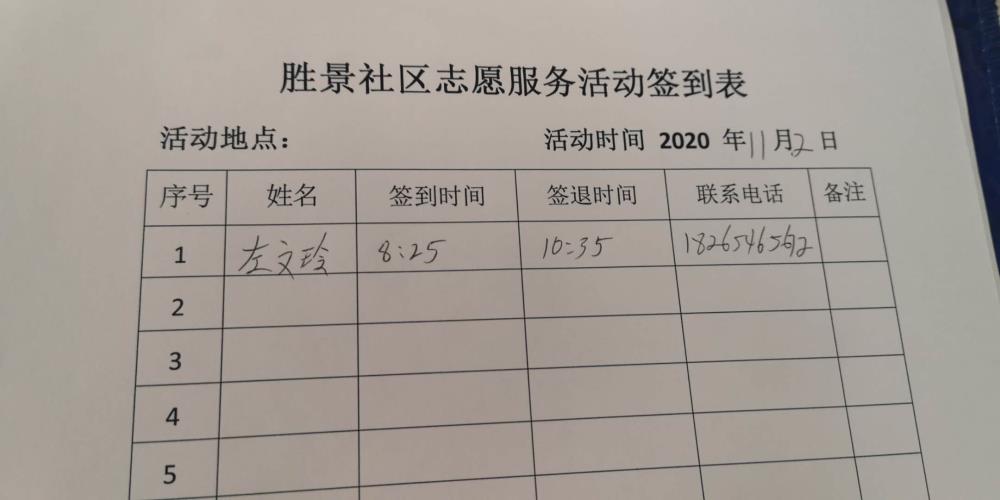 胜景社区志愿服务活动签到表
活动地点： 活动时间 2020 年11月2日
序号 姓名 签到时间 签退时间 联系电话 备注
1 左文玲 8:25 10:35
2
3
4
5